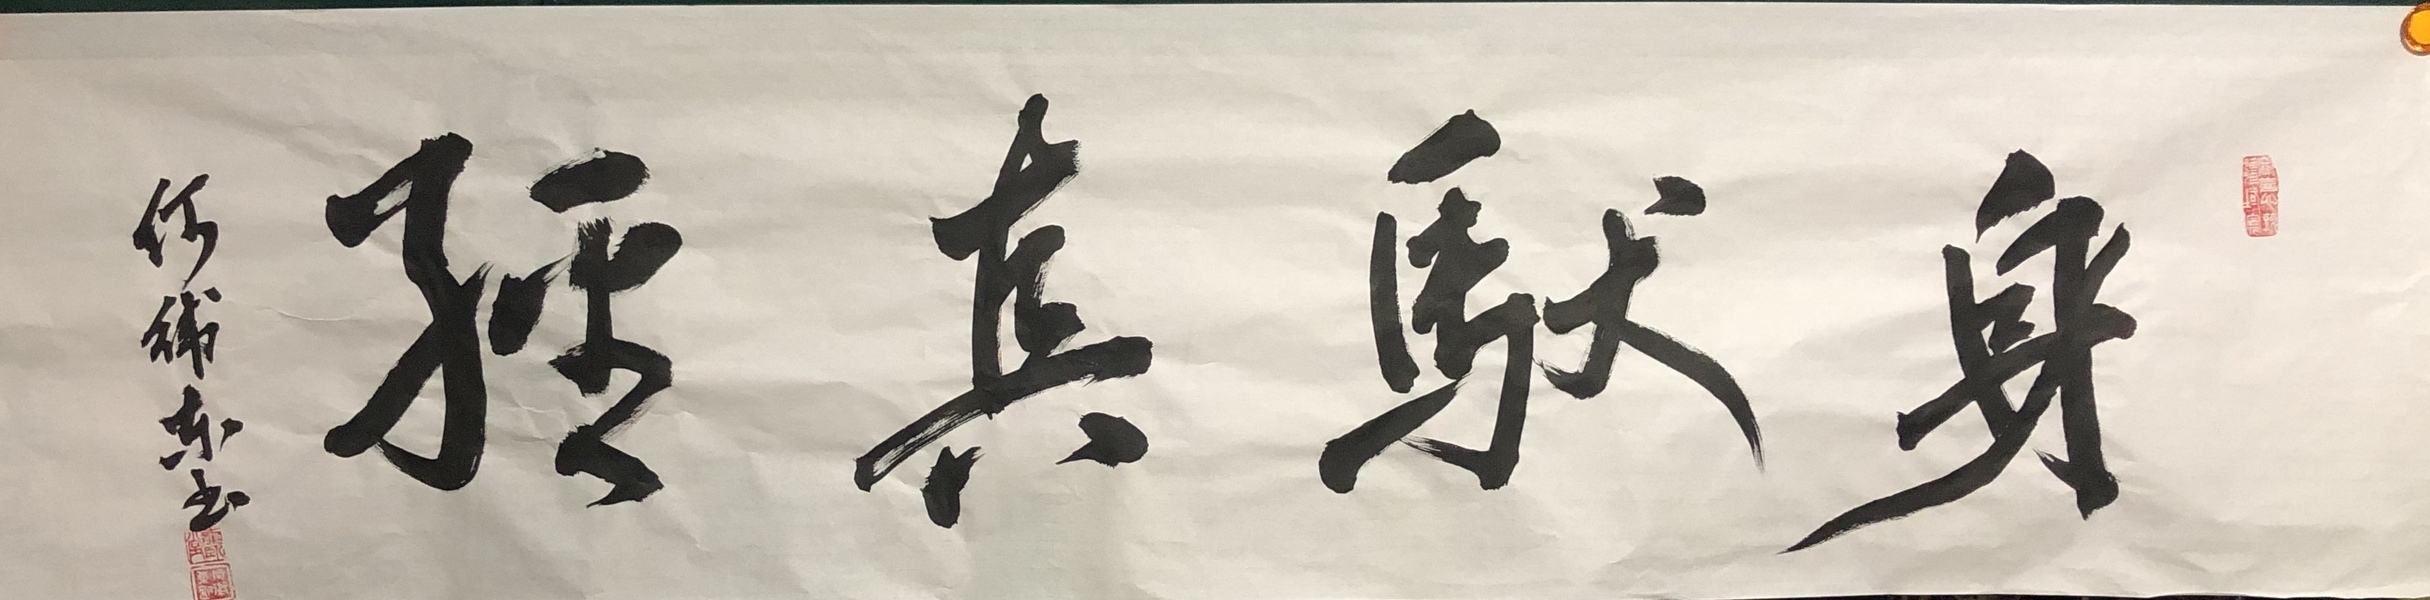 身馱真經
何繡東書